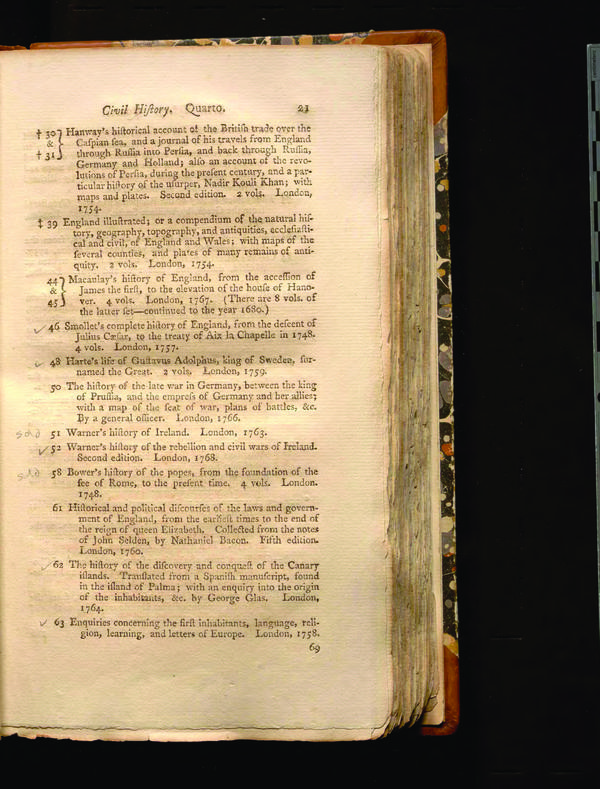 Civil Hiſtory. Quarto. 21
† 30 } Hanway's hiſtorical account of the Britiſh trade over the
& Caſpian ſea, and a journal of his travels from England
† 31 } through Ruſſia into Perſia, and back through Ruſſia,
Germany and Holland; alſo an account of the revo-
lutions of Perſia, during the preſent century, and a par-
ticular hiſtory of the uſurper, Nadir Kouli Khan; with
maps and plates. Second edition. 2 vols. London,
1754.
‡ 39 England illuſtrated; or a compendium of the natural hiſ-
tory, geography, topography, and antiquities, eccleſiaſti-
cal and civil, of England and Wales; with maps of the
ſeveral counties, and plates of many remains of anti-
quity. 2 vols. London, 1754.
44 } Macaulay's hiſtory of England, from the acceſſion of
& James the firſt, to the elevation of the houſe of Hano-
45 } ver. 4 vols. London, 1767. (There are 8 vols. of
the latter ſet—continued to the year 1680.)
✓ 46 Smollet's complete hiſtory of England, from the deſcent of
Julius Cæſar, to the treaty of Aix la Chapelle in 1748.
4 vols. London, 1757.
✓ 48 Harte's life of Guſtavus Adolphus, king of Sweden, ſur-
named the Great. 2 vols. London, 1759.
50 The hiſtory of the late war in Germany, between the king
of Pruſſia, and the empreſs of Germany and her allies;
with a map of the ſeat of war, plans of battles, &c.
By a general officer. London, 1766.
sold 51 Warner's hiſtory of Ireland. London, 1763.
✓ 52 Warner's hiſtory of the rebellion and civil wars of Ireland.
Second edition. London, 1768.
sold 58 Bower's hiſtory of the popes, from the foundation of the
ſee of Rome, to the preſent time. 4 vols. London.
1748.
61 Hiſtorical and political diſcourſes of the laws and govern-
ment of England, from the earlieſt times to the end of
the reign of queen Elizabeth. Collected from the notes
of John Selden, by Nathaniel Bacon. Fifth edition.
London, 1760.
✓ 62 The hiſtory of the diſcovery and conqueſt of the Canary
iſlands. Tranſlated from a Spaniſh manuſcript, found
in the iſland of Palma; with an enquiry into the origin
of the inhabitants, &c. by George Glas. London,
1764.
✓ 63 Enquiries concerning the firſt inhabitants, language, reli-
gion, learning, and letters of Europe. London, 1758.
69